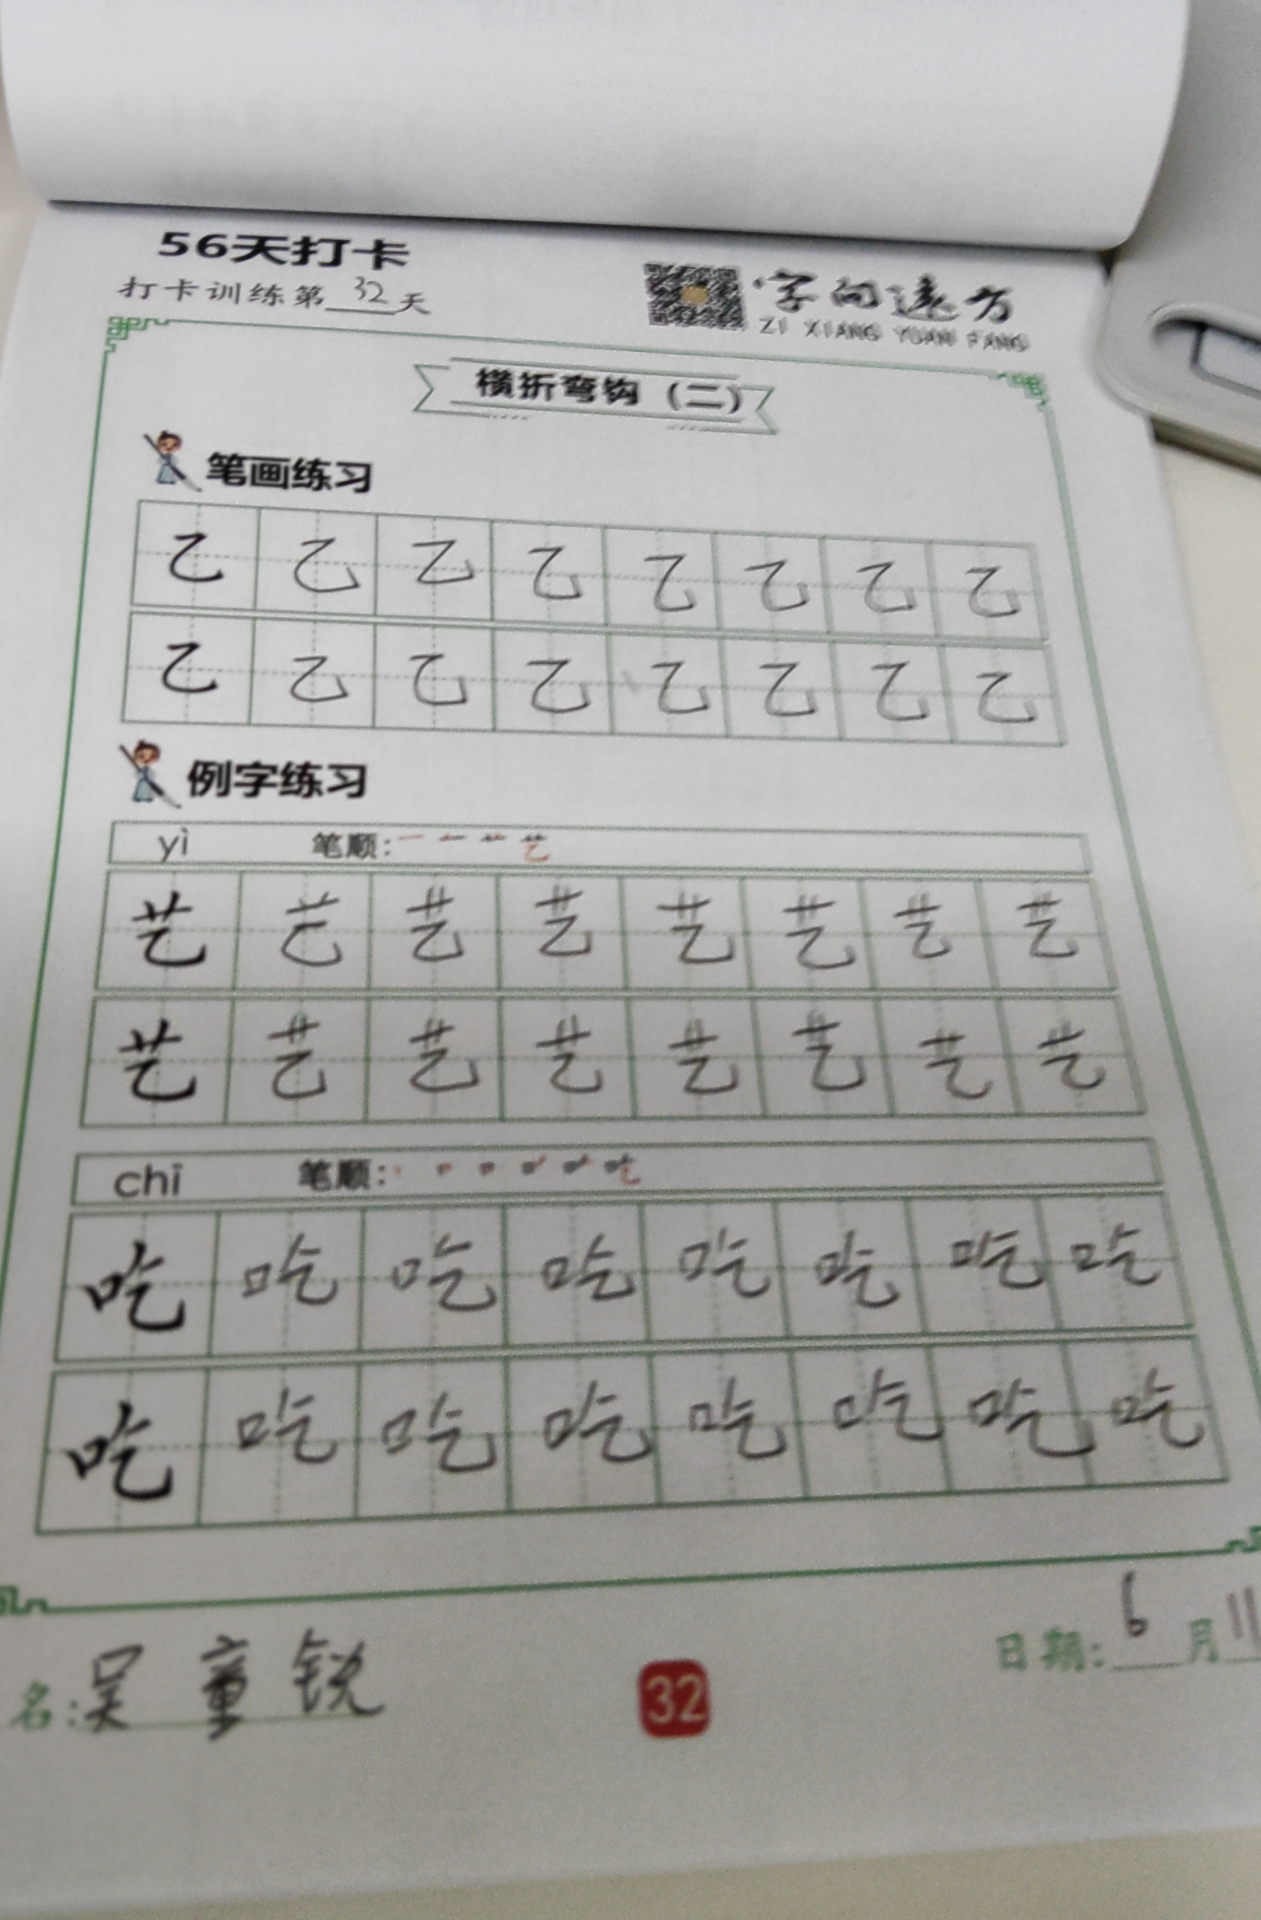 56天打卡
打卡训练第32天
字向远方
ZI XIANG YUAN FANG
横折弯钩（二）
笔画练习
乙 乙 乙 乙 乙 乙 乙 乙
乙 乙 乙 乙 乙 乙 乙 乙
例字练习
yì 笔顺: 一 艹 艺
艺 艺 艺 艺 艺 艺 艺 艺
艺 艺 艺 艺 艺 艺 艺 艺
chī 笔顺:
吃 吃 吃 吃 吃 吃 吃 吃
吃 吃 吃 吃 吃 吃 吃 吃
名:吴童锐
32
日期: 6 月 11